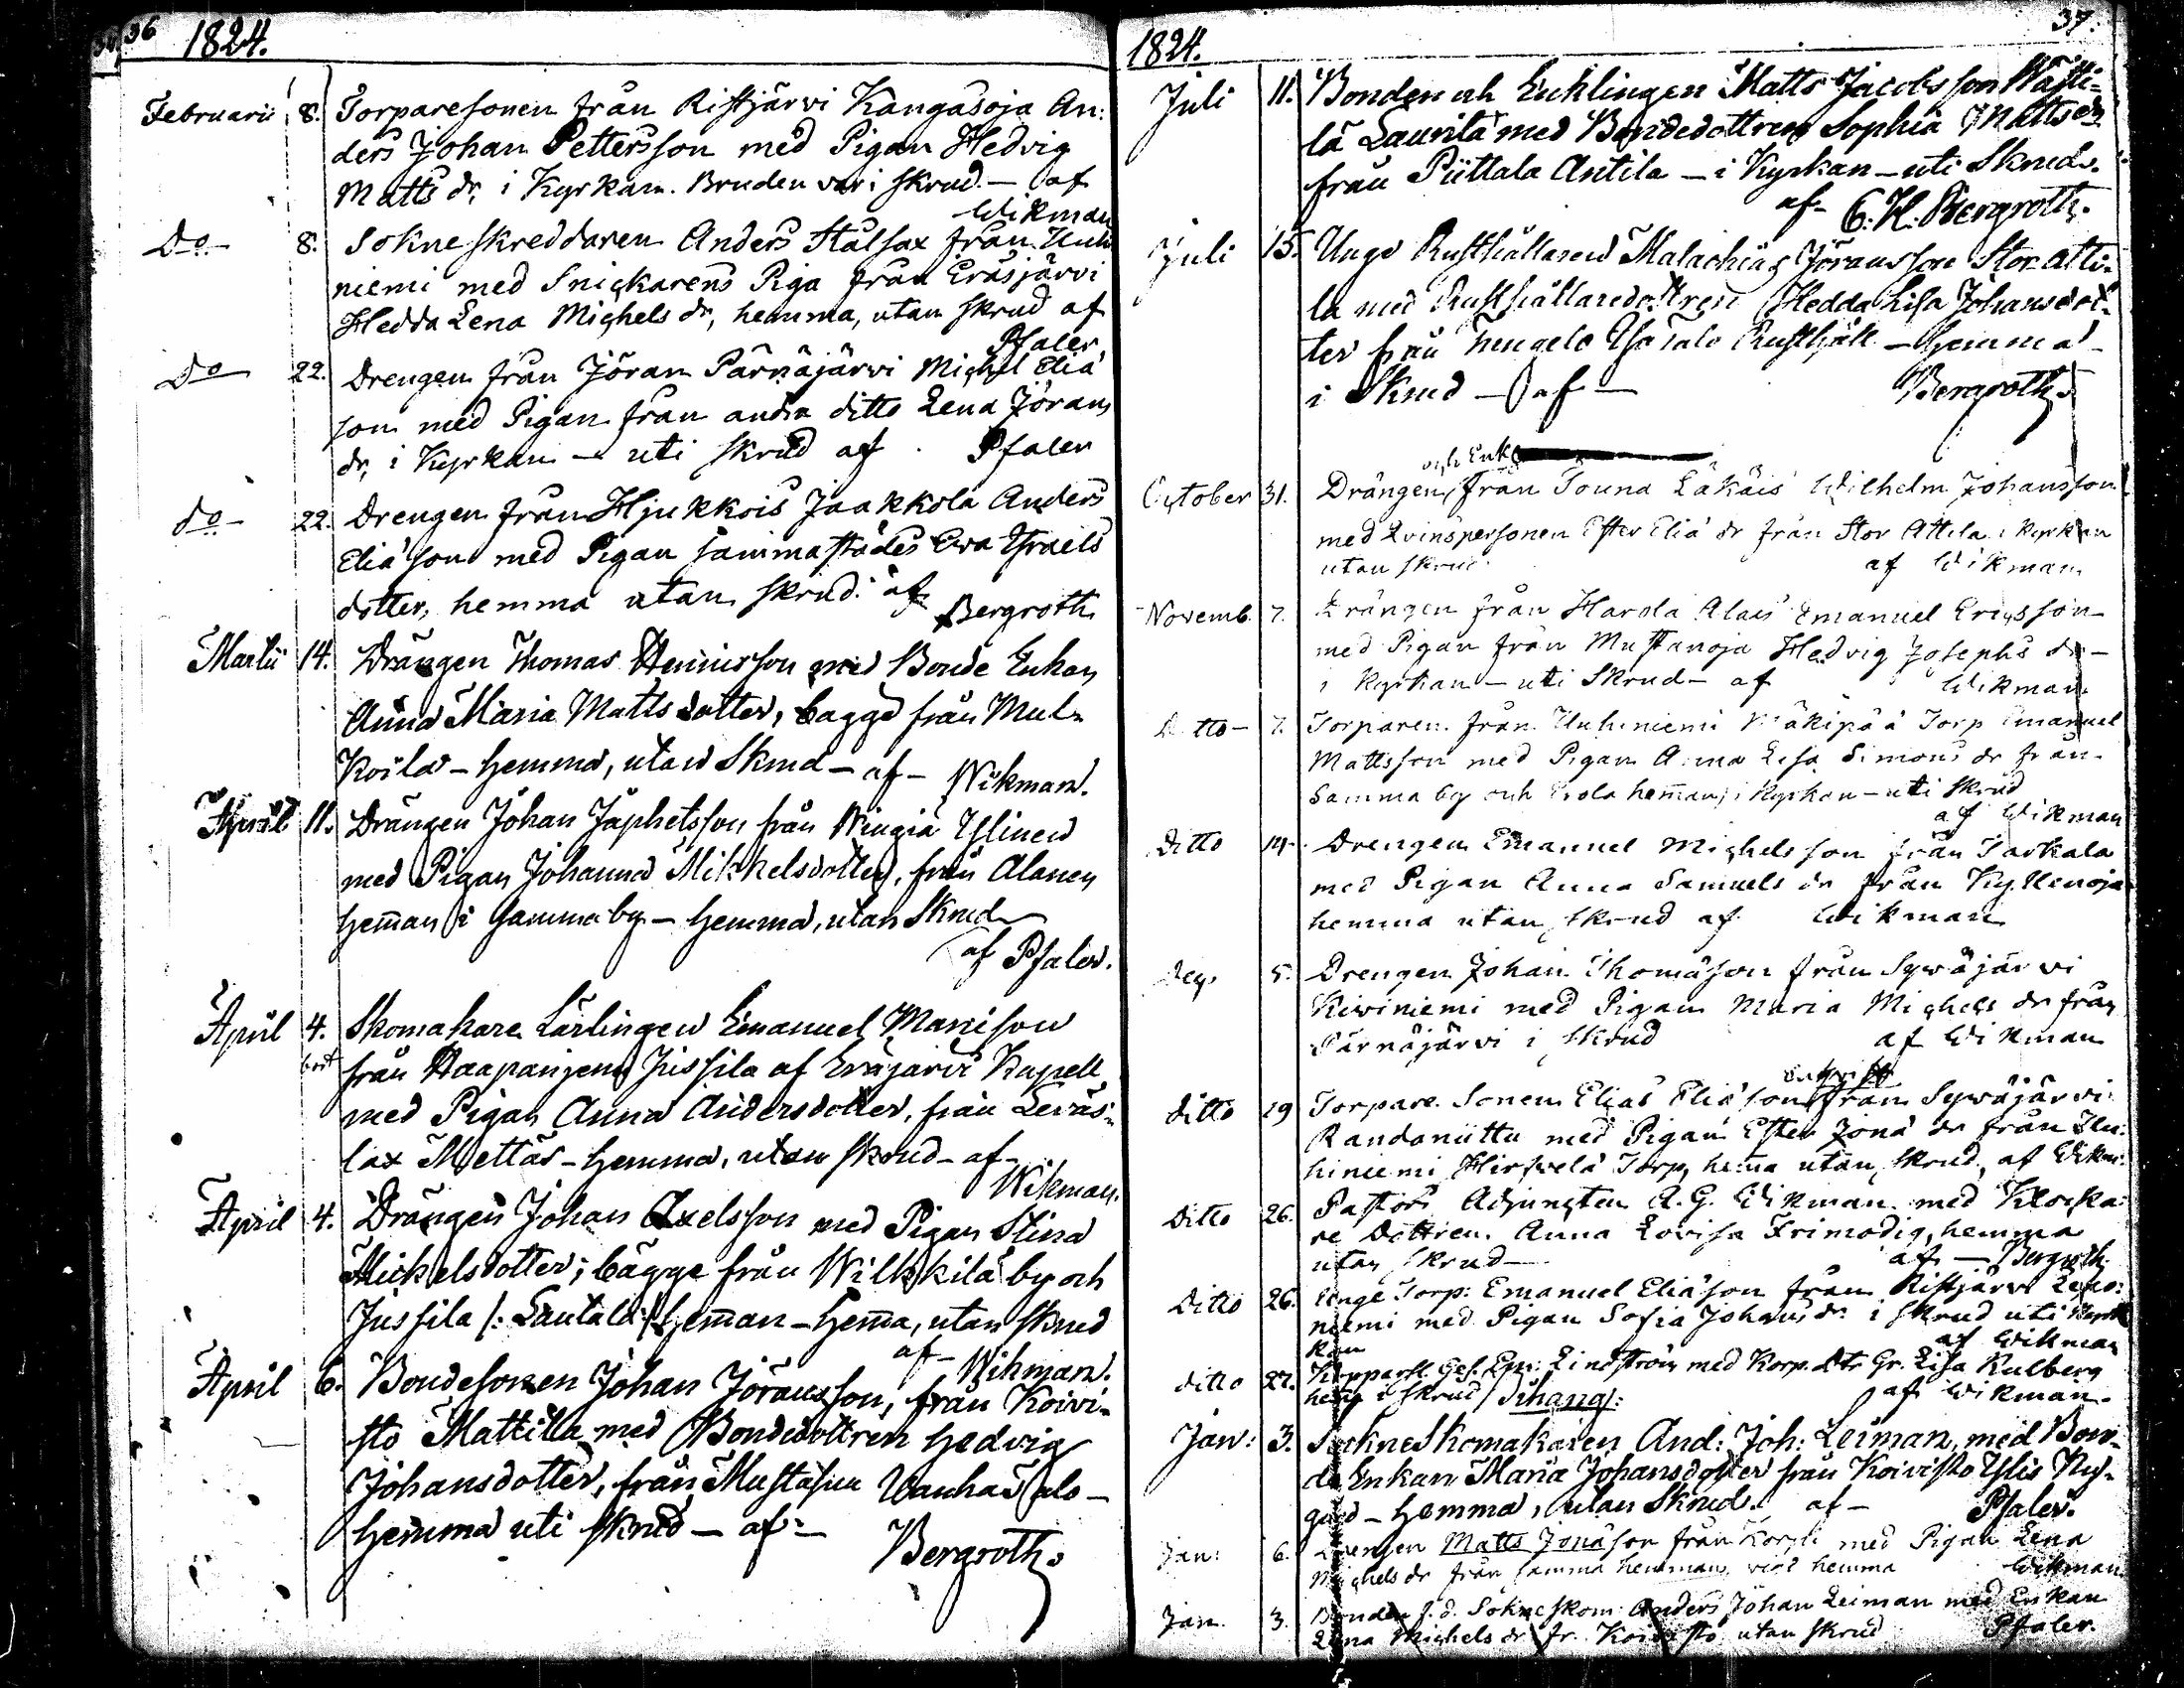 36 1824.
Februarii 8. Torparesonen från Ristjärvi Kangasoja An:
ders Johan Pettersson med Pigan Hedvig
Matts dr, i Kyrkan. Bruden var i skrud. — af
Wikman
Do 8. Sokneskreddaren Anders Stålsax från Huh
niemi med Snickarens Piga från Eräsjärvi
Hedda Lena Michels dr, hemma, utan skrud af
Pfaler
Do 22. Drengen från Jöran Pärnäjärvi Michel Elia
son med Pigan från andra ditto Lena Jörans
dr, i Kyrkan — uti skrud af Pfaler
do 22. Drengen från Hjukkois Jaakkola Anders
Eliä son med Pigan sammastädes Eva Israels
dotter, hemma utan skrud. af
Bergroth
Martii 14. Drängen Thomas Henricsson med Bonde Enkan
Anna Maria Matts dotter, bägge från Mul-
Koila - hemma, utan Skrud - af - Wikman.
April 11. Drängen Johan Japhetsson från Wingiä Ylinen
med Pigan Johanna Mikkelsdotter, från Alanen
heman i samma by - hemma, utan Skrud
af Pfaler.
April 4. Skomakare Lärlingen Emanuel Manison
från Haapaniemi Jussila af Eräjärvi Kapell
med Pigan Anna Andersdotter, från Leväs-
lax Mettäs - hemma, utan skrud - af -
Wikman.
April 4. Drängen Johan Axelsson med Pigan Stina
Mickelsdotter; bägge från Wilkkilä by och
Jussila /: Lautala :/ heman - hema, utan skrud
af - Wikman.
April 6. Bondesonen Johan Jöransson, från Koivi-
sto Mattila med Bondedottren Hedvig
Johansdotter, från Mustasuu Vanhatalo -
hemma uti skrud - af - Bergroth.
37.
1824.
Juli 11. Bonden och Enklingen Matts Jacobsson Wästi-
lä Laurila med Bondedottren Sophia Matts dr
från Piittala Antila - i Kyrkan - uti Skrud.
af C. H. Bergroth.
Juli 15. Unge Rusthållaren Malachias Jöransson Stor Atti-
la med Rusthållaredottren Hedda Lisa Johansdot-
ter från Isotalo Rusthåll - hemma -
i Skrud - af - Bergroth
och Enkl
October 31. Drängen från Touna Wilhelm Johansson
med Qvinspersonen Ester Eliä dr från Stor Attila i kyrkan
utan skrud. af Wikman
Novemb. 7. Drängen från Harola Alais Emanuel Ericsson
med Pigan från Mustanoja Hedvig Josephs dr -
i Kyrkan - uti Skrud - af Wikman
Ditto - 7. Torparen från Huhniemi Mäkipää Torp Emanuel
Mattsson med Pigan Anna Lisa Simons dr från
Samma by och Erola heman, i kyrkan - uti skrud
af Wikman
Ditto 14. Drengen Emanuel Michels son från Tarkala
med Pigan Anna Samuels dr från Kyllenoja
hemma utan skrud af Wikman
Dec. 5. Drengen Johan Thomäson från Sywäjärvi
Kiviniemi med Pigan Maria Michels dr från
Pärnäjärvi i skrud af Wikman
ditto 19 Torpare Sonen Elias Eliä son från Sywäjärvi
Randaniittu med Pigan Ester Jonä dr från Hu-
hiniemi Hirsvelä Torp, hema utan skrud, af Wikm:
Ditto 26. Pastors Adjuncten A. G. Wikman med Klocka-
re Dottren Anna Lovisa Frimodig, hemma
utan skrud - af - Bergroth
Ditto 26. Unge Torp: Emanuel Eliäson från Ristjärvi Lepo-
niemi med Pigan Sofia Johans dr i skrud uti Kyr
kan af Wikman
ditto 27. Ges. Em: Lindström med Korp. Dtr Gr. Lisa Kulberg
hema i skrud af Wikman
Jan: 3. SockneSkomakaren And: Joh: Leiman, med Bon-
de Enkan Maria Johansdotter från Koivisto Ylis Ny-
gård - hemma, utan Skrud. af - Pfaler.
Jan: 6. Drengen Matts Jonäson från med Pigan Lena
Michels dr från samma hemman, hemma Wikman
Jan. 3. Bonden f. d. Sokneskom: Anders Johan Leiman med Enkan
Lena Michels dr fr. Koivisto utan skrud Pfaler.